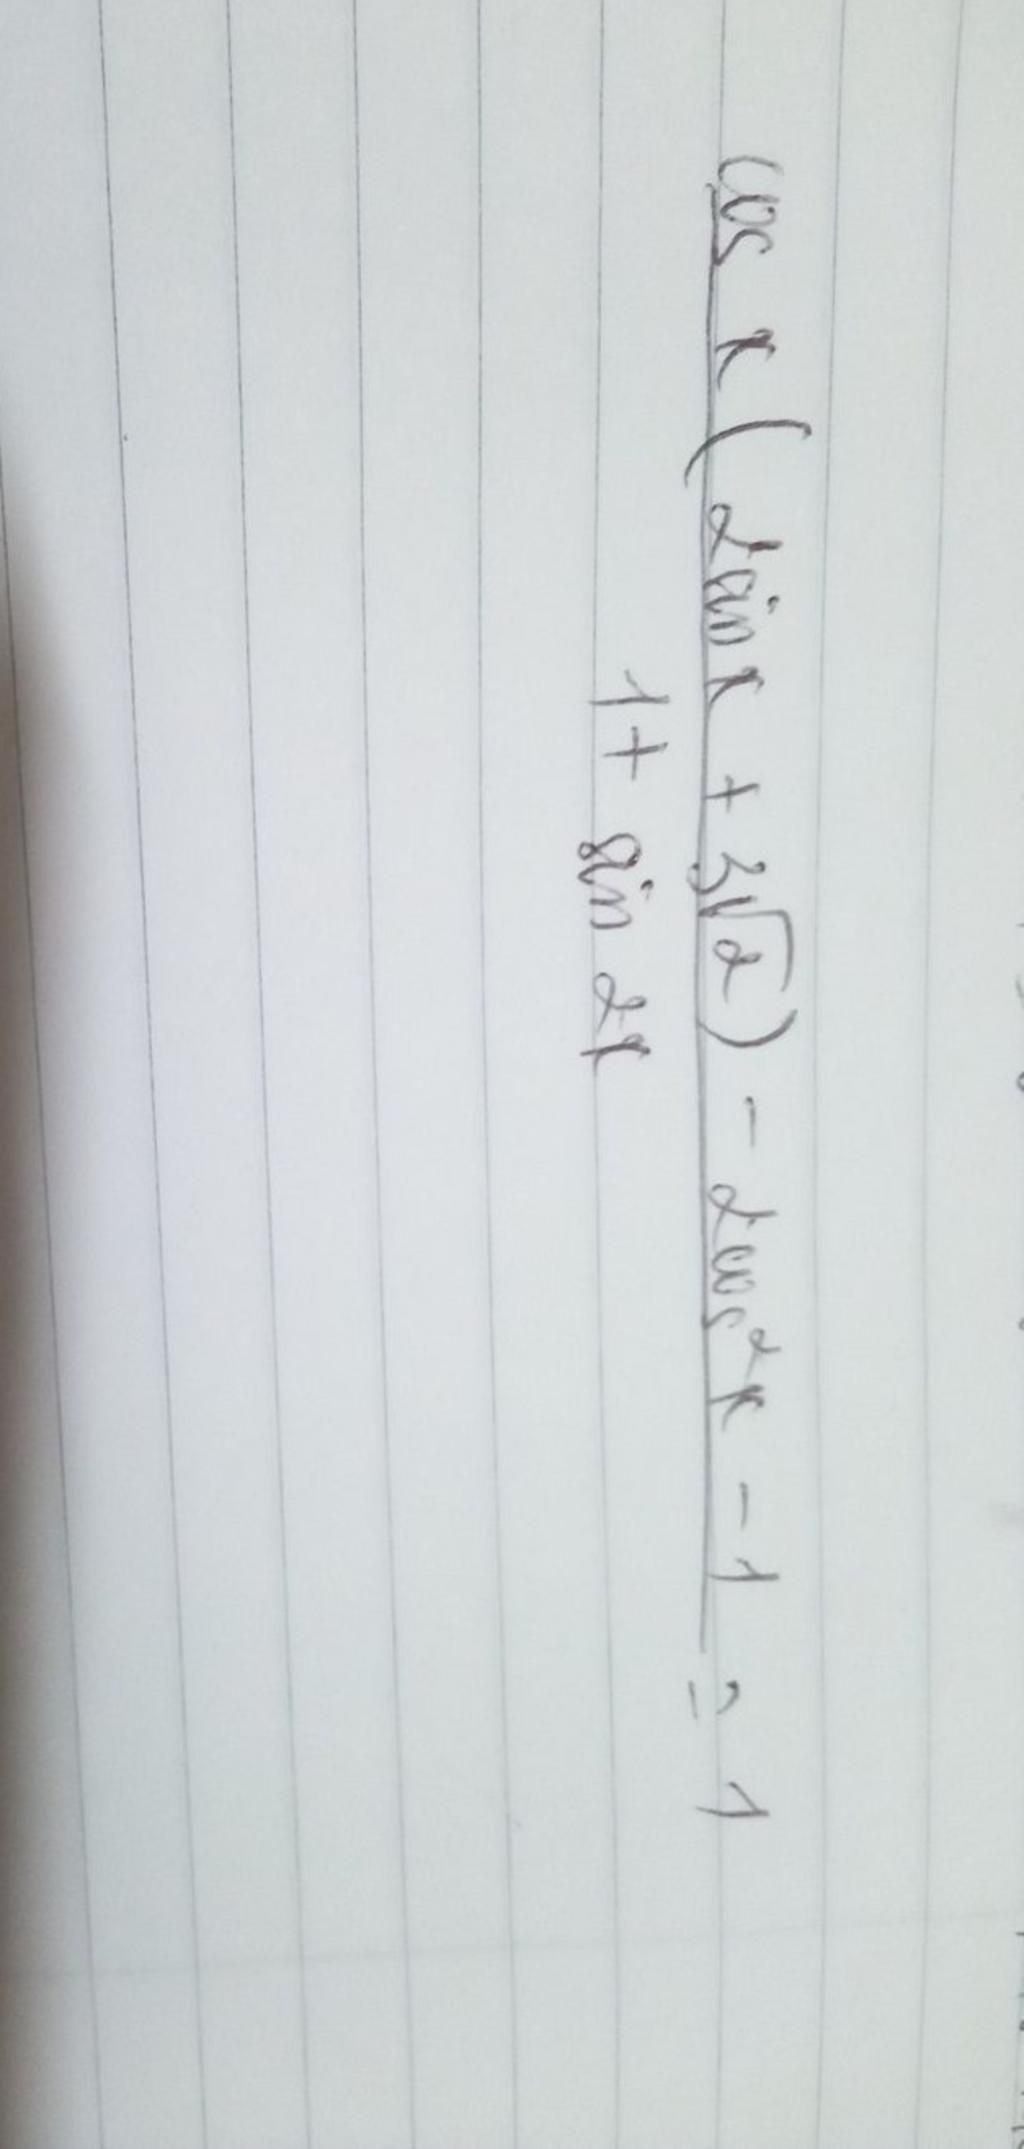 cos x (2sin x + 3√2) - 2cos²x - 1 = 1
1 + sin 2x